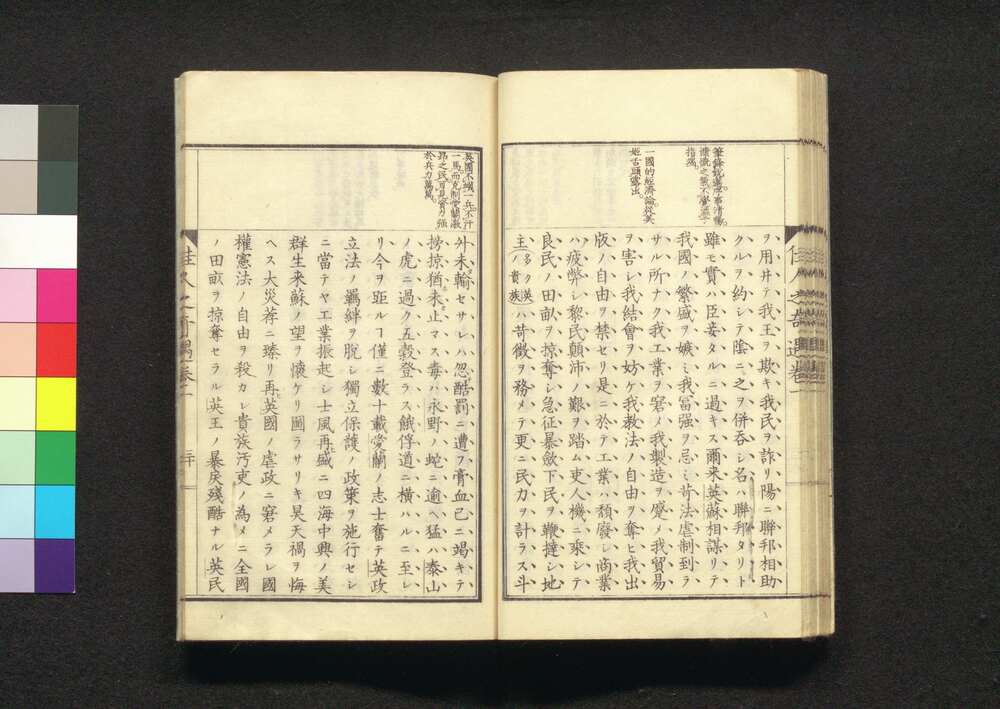 佳人之奇遇卷一
ヲ用井テ我王ヲ欺キ我民ヲ詐リ陽ニ聯邦相助
クルヲ約シテ陰ニ之ヲ併呑シ名ハ聯邦タリト
雖モ實ハ臣妾タルニ過キス爾来英蘇相謀リテ
我國ノ繁盛ヲ嫉ミ我冨强ヲ忌ミ苛法虐制到ラ
サル所ナク我工業ヲ窘メ我製造ヲ蹙メ我貿易
ヲ害シ我結會ヲ妨ケ我教法ノ自由ヲ奪ヒ我出
版ノ自由ヲ禁セリ是ニ於テ工業ハ頽廢シ商業
ハ疲弊シ黎民顛沛ノ艱ヲ踏ム吏人機ニ乘シテ
良民ノ田畝ヲ掠奪シ急征暴斂下民ヲ鞭撻シ地
主多ク英ノ貴族ハ苛徴ヲ務メテ更ニ民力ヲ計ラス斗
叙事清暢。
指瑕。
一國的經濟論從美
姫舌頭露出。
外未輸セサレハ忽酷罰ニ遭フ膏血已ニ竭キテ
撈掠猶未止マス毒ハ永野ノ蛇ニ逾ヘ猛ハ泰山
ノ虎ニ過ク五穀登ラス餓俘道ニ横ハルニ至レ
リ今ヲ距ルヿ僅ニ數十載愛蘭ノ志士奮テ英政
立法ノ羈絆ヲ脱シ獨立保護ノ政策ヲ施行セシ
ニ當テヤ工業振起シ士風再盛ニ四海中興ノ美
群生来蘇ノ望ヲ懷ケリ圖ラサリキ昊天禍ヲ悔
ヘス大災荐ニ臻リ再英國ノ虐政ニ窘メラレ國
權憲法ノ自由ヲ殺カレ貴族汚吏ノ為メニ全國
ノ田畝ヲ掠奪セラル英王ノ暴戻殘酷ナル英民
英國不衂一兵不汗
一馬而克制愛蘭激
昂之民可見實力强
於兵力萬萬。
佳人之奇遇卷一
三十